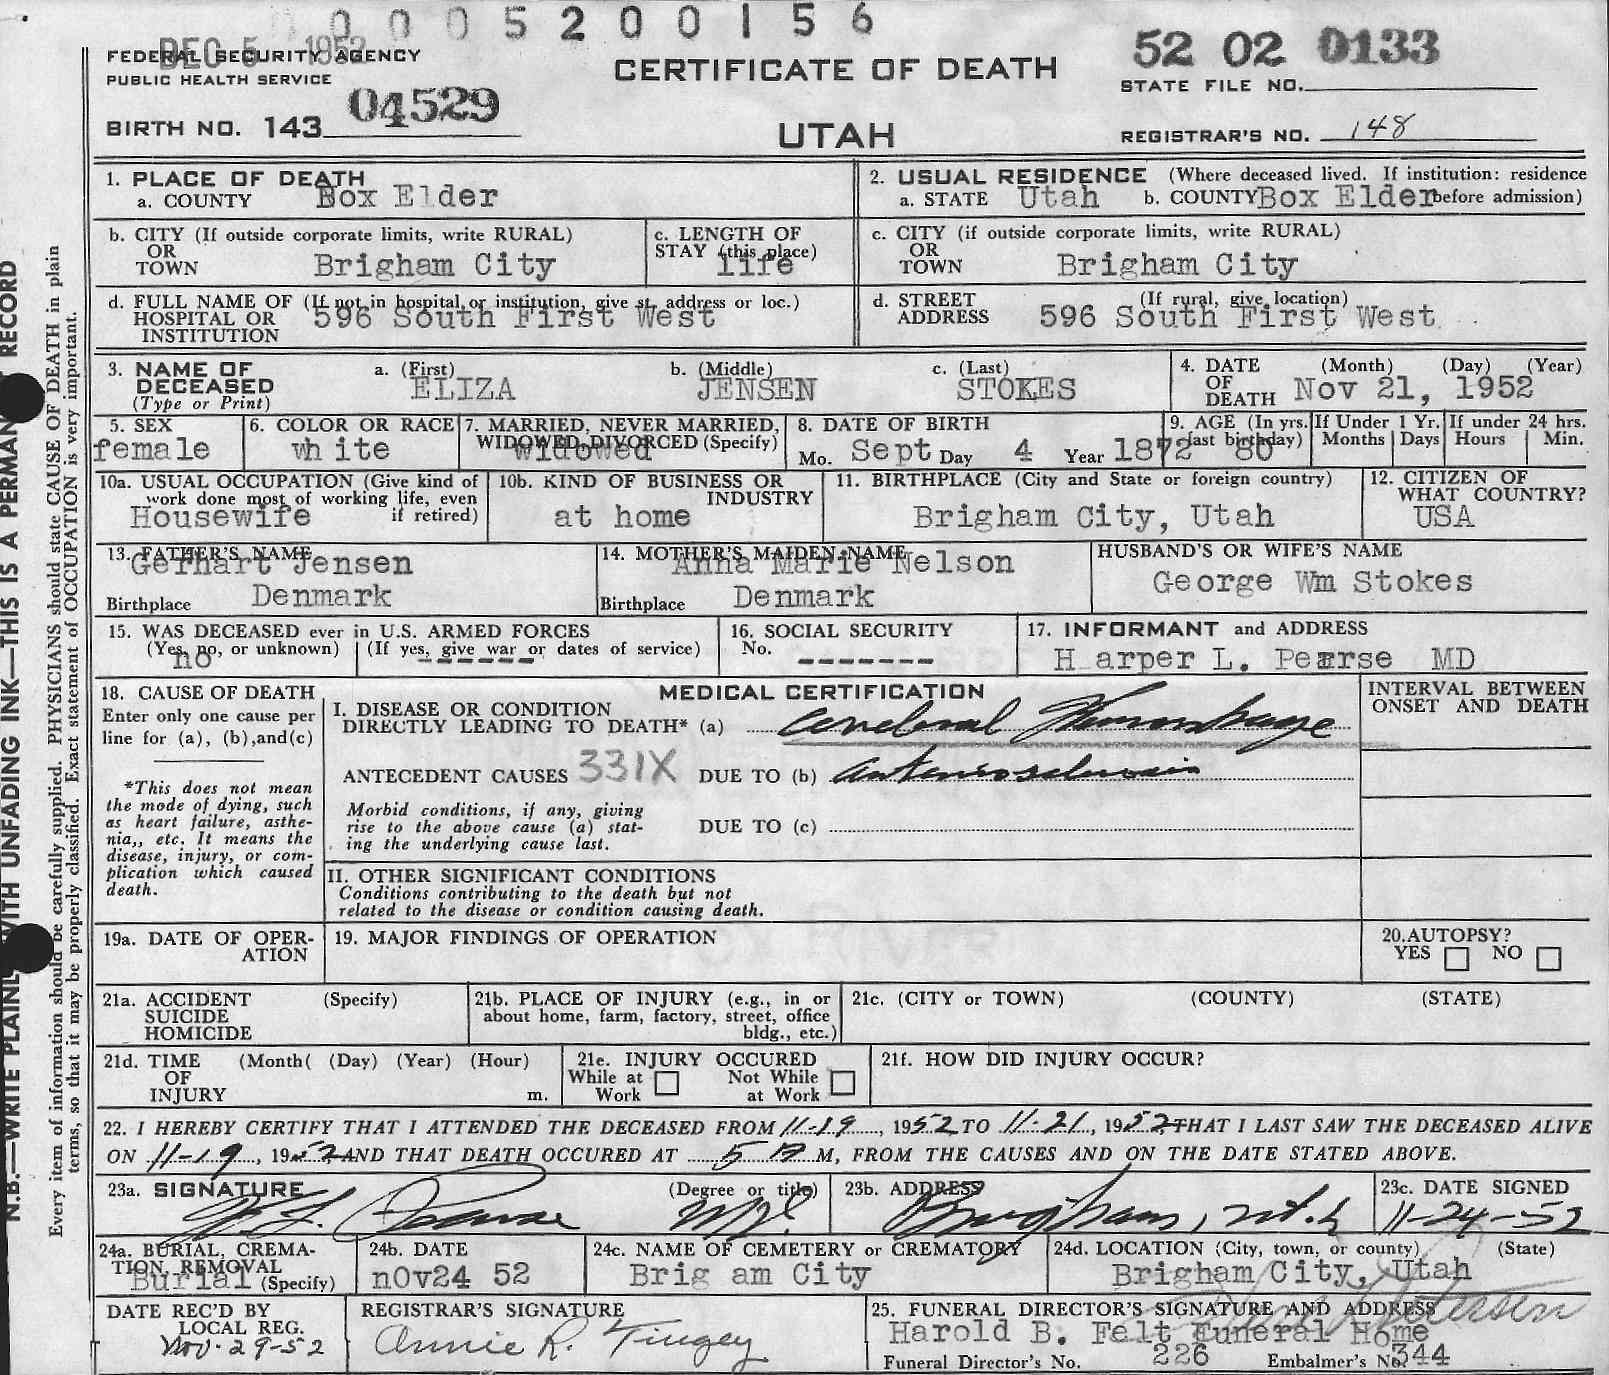 0 0 0 5 2 0 0 1 5 6
DEC 5 1952
FEDERAL SECURITY AGENCY
PUBLIC HEALTH SERVICE
BIRTH NO. 143 04529
CERTIFICATE OF DEATH
UTAH
52 02 0133
STATE FILE NO.
REGISTRAR'S NO. 148
N.B.—WRITE PLAINLY WITH UNFADING INK—THIS IS A PERMANENT RECORD
Every item of information should be carefully supplied. PHYSICIANS should state CAUSE OF DEATH in plain
terms, so that it may be properly classified. Exact statement of OCCUPATION is very important.
1. PLACE OF DEATH
a. COUNTY Box Elder
2. USUAL RESIDENCE (Where deceased lived. If institution: residence
a. STATE Utah b. COUNTY Box Elder before admission)
b. CITY (If outside corporate limits, write RURAL)
OR
TOWN Brigham City
c. LENGTH OF
STAY (this place)
life
c. CITY (if outside corporate limits, write RURAL)
OR
TOWN Brigham City
d. FULL NAME OF (If not in hospital or institution, give st. address or loc.)
HOSPITAL OR 596 South First West
INSTITUTION
d. STREET (If rural, give location)
ADDRESS 596 South First West
3. NAME OF
DECEASED
(Type or Print)
a. (First)
ELIZA
b. (Middle)
JENSEN
c. (Last)
STOKES
4. DATE (Month) (Day) (Year)
OF
DEATH Nov 21, 1952
5. SEX
female
6. COLOR OR RACE
wh ite
7. MARRIED, NEVER MARRIED,
WIDOWED, DIVORCED (Specify)
widowed
8. DATE OF BIRTH
Mo. Sept Day 4 Year 1872
9. AGE (In yrs.
last birthday)
80
If Under 1 Yr.
Months Days
If under 24 hrs.
Hours Min.
10a. USUAL OCCUPATION (Give kind of
work done most of working life, even
if retired)
Housewife
10b. KIND OF BUSINESS OR
INDUSTRY
at home
11. BIRTHPLACE (City and State or foreign country)
Brigham City, Utah
12. CITIZEN OF
WHAT COUNTRY?
USA
13. FATHER'S NAME
Gerhart Jensen
Birthplace Denmark
14. MOTHER'S MAIDEN NAME
Anna Marie Nelson
Birthplace Denmark
HUSBAND'S OR WIFE'S NAME
George Wm Stokes
15. WAS DECEASED ever in U.S. ARMED FORCES
(Yes, no, or unknown) (If yes, give war or dates of service)
no -------
16. SOCIAL SECURITY
No. -------
17. INFORMANT and ADDRESS
H arper L. Pearse MD
18. CAUSE OF DEATH
Enter only one cause per
line for (a), (b),and(c)
*This does not mean
the mode of dying, such
as heart failure, asthe-
nia,, etc. It means the
disease, injury, or com-
plication which caused
death.
MEDICAL CERTIFICATION
I. DISEASE OR CONDITION
DIRECTLY LEADING TO DEATH* (a) Cerebral Hemorrhage
ANTECEDENT CAUSES 331X DUE TO (b) arteriosclerosis
Morbid conditions, if any, giving
rise to the above cause (a) stat-
ing the underlying cause last.
DUE TO (c)
II. OTHER SIGNIFICANT CONDITIONS
Conditions contributing to the death but not
related to the disease or condition causing death.
INTERVAL BETWEEN
ONSET AND DEATH
19a. DATE OF OPER-
ATION
19. MAJOR FINDINGS OF OPERATION
20.AUTOPSY?
YES NO
21a. ACCIDENT (Specify)
SUICIDE
HOMICIDE
21b. PLACE OF INJURY (e.g., in or
about home, farm, factory, street, office
bldg., etc.)
21c. (CITY or TOWN) (COUNTY) (STATE)
21d. TIME (Month( (Day) (Year) (Hour)
OF
INJURY m.
21e. INJURY OCCURED
While at Not While
Work at Work
21f. HOW DID INJURY OCCUR?
22. I HEREBY CERTIFY THAT I ATTENDED THE DECEASED FROM 11-19, 1952 TO 11-21, 1952, THAT I LAST SAW THE DECEASED ALIVE
ON 11-19, 1952, AND THAT DEATH OCCURED AT 5 P M, FROM THE CAUSES AND ON THE DATE STATED ABOVE.
23a. SIGNATURE (Degree or title)
H. L. Pearse MD.
23b. ADDRESS
Brigham, Utah
23c. DATE SIGNED
11-24-52
24a. BURIAL, CREMA-
TION, REMOVAL
Burial (Specify)
24b. DATE
nOv24 52
24c. NAME OF CEMETERY or CREMATORY
Brig am City
24d. LOCATION (City, town, or county) (State)
Brigham City, Utah
DATE REC'D BY
LOCAL REG.
Nov. 29-52
REGISTRAR'S SIGNATURE
Annie R. Tingey
25. FUNERAL DIRECTOR'S SIGNATURE AND ADDRESS
Petersen
Harold B. Felt Funeral Home
Funeral Director's No. 226 Embalmer's No. 344